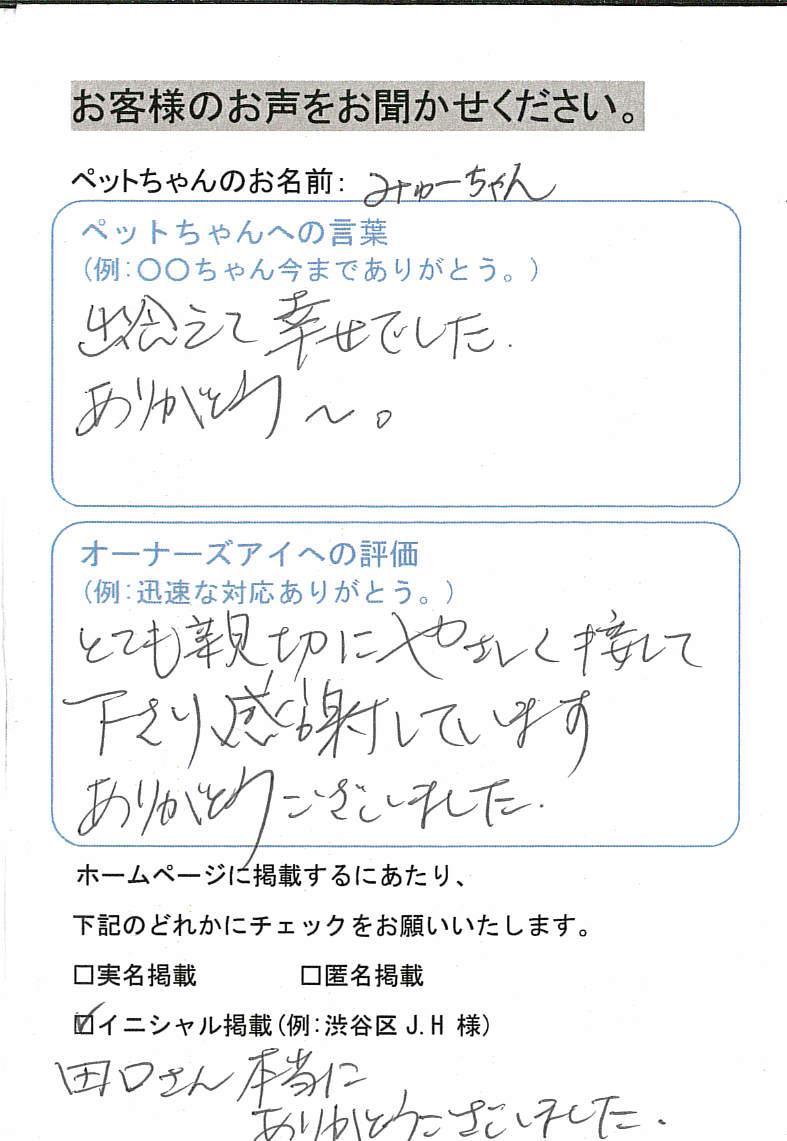 お客様のお声をお聞かせください。
ペットちゃんのお名前: みゅーちゃん
ペットちゃんへの言葉
(例:〇〇ちゃん今までありがとう。)
出会えて幸せでした.
ありがとう〜。
オーナーズアイへの評価
(例:迅速な対応ありがとう。)
とても親切にやさしく接して
下さり感謝しています
ありがとうございました.
ホームページに掲載するにあたり、
下記のどれかにチェックをお願いいたします。
□実名掲載 □匿名掲載
☑イニシャル掲載(例:渋谷区 J.H 様)
田口さん 本当に
ありがとうございました.